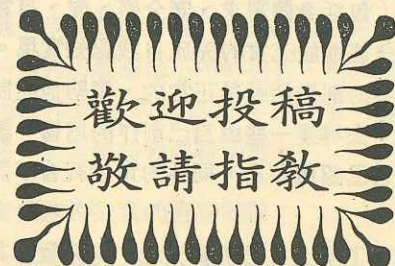 歡迎投稿
敬請指教